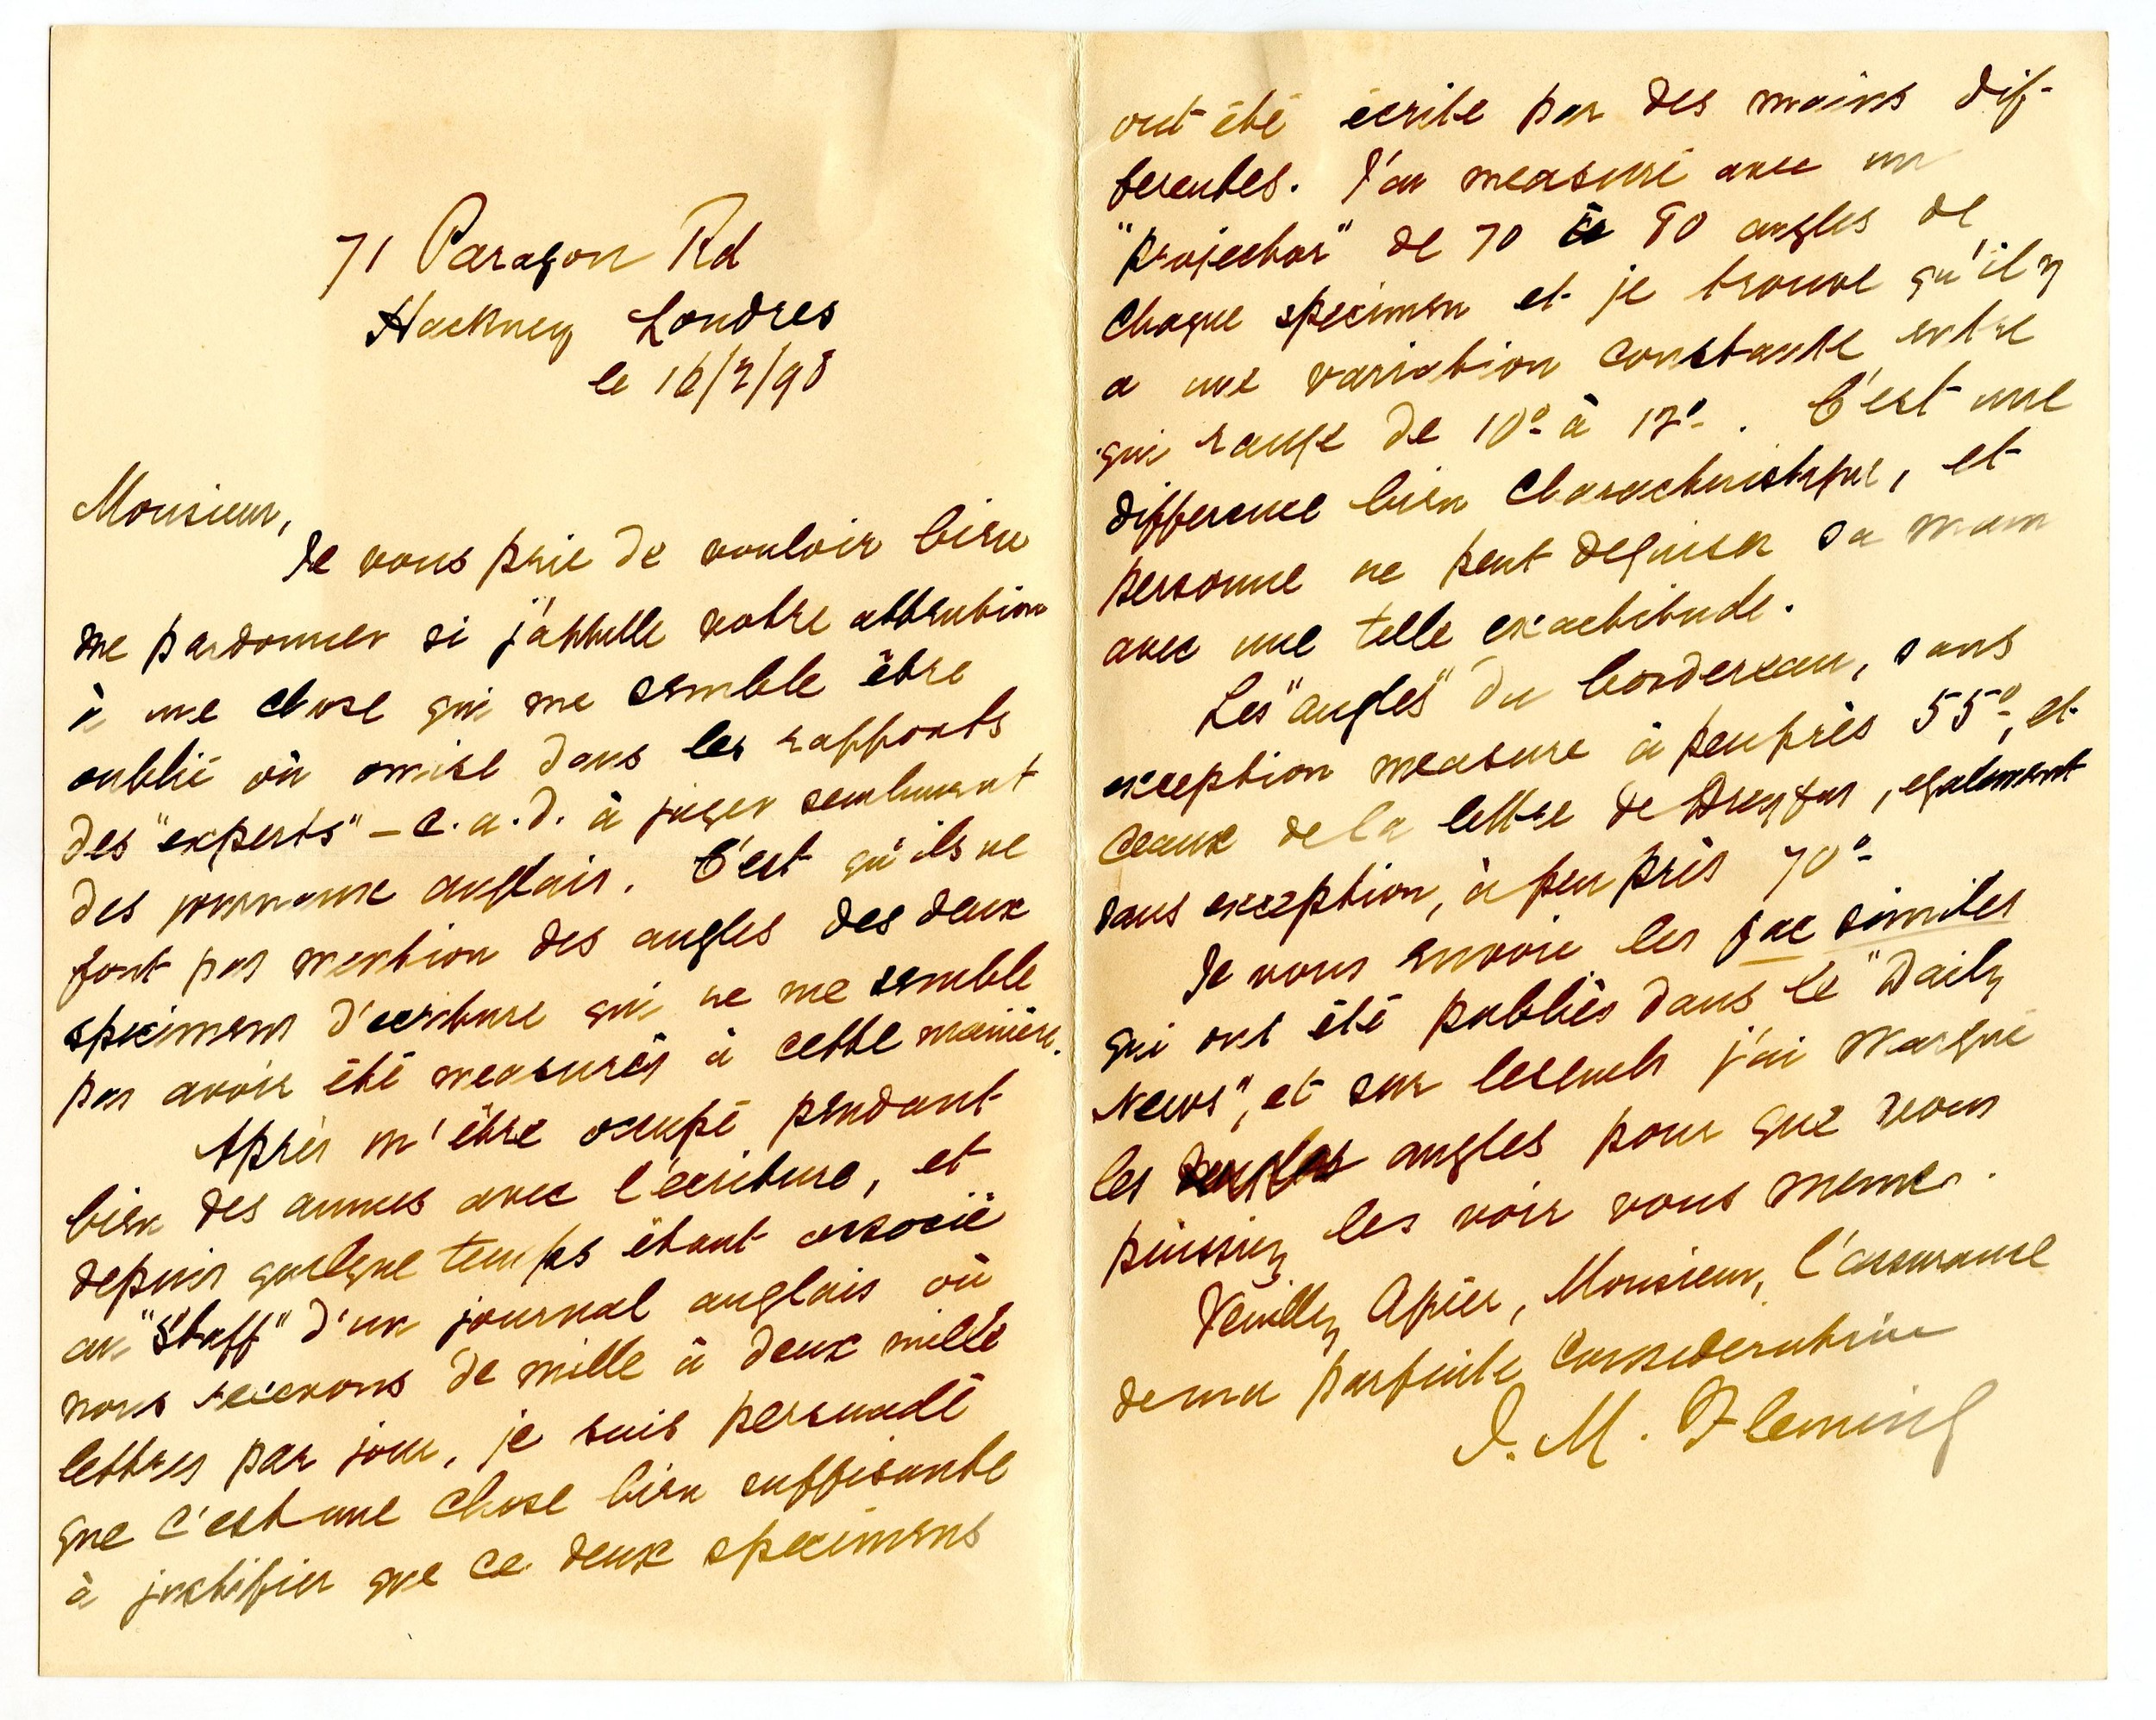 71 Paragon Rd
Hackney Londres
le 16/2/98
Monsieur,
Je vous prie de vouloir bien
me pardonner si j'appelle votre attention
à une chose qui me semble être
oublié où omise dans les rapports
des "experts" – c.a.d. à juger seulement
des journaux anglais. C'est qu'ils ne
font pas mention des angles des deux
specimens d'ecriture qui ne me semble
pas avoir été measurés à cette manière.
Après m'être occupé pendant
bien des annees avec l'écriture, et
depuis quelque temps étant associé
au "Staff" d'un journal anglais où
nous recevons de mille à deux mille
lettres par jour, je suis persuadé
que c'est une chose bien suffisante
à justifier que ce deux specimens
ont été écrite par des mains dif-
ferentes. J'ai measuré avec un
"projector" de 70 à 80 angles de
chaque specimen et je trouve qu'il y
a une variation constante entre
qui range de 10° à 17°. C'est une
difference bien characteristique, et
personne ne peut deguiser sa main
avec une telle exactitude.
Les "angles" du bordereau, sans
exception measure à peu près 55°, et
ceaux de la lettre de Dreyfus, egalement
sans exception, à peu près 70°
Je vous envoie les fac similes
qui ont été publiés dans le "Daily
News", et sur lesquels j'ai marqué
les angles pour que vous
puissiez les voir vous meme.
Veuillez Agréer, Monsieur, l'assurance
de ma parfaite consideration
J. M. Fleming